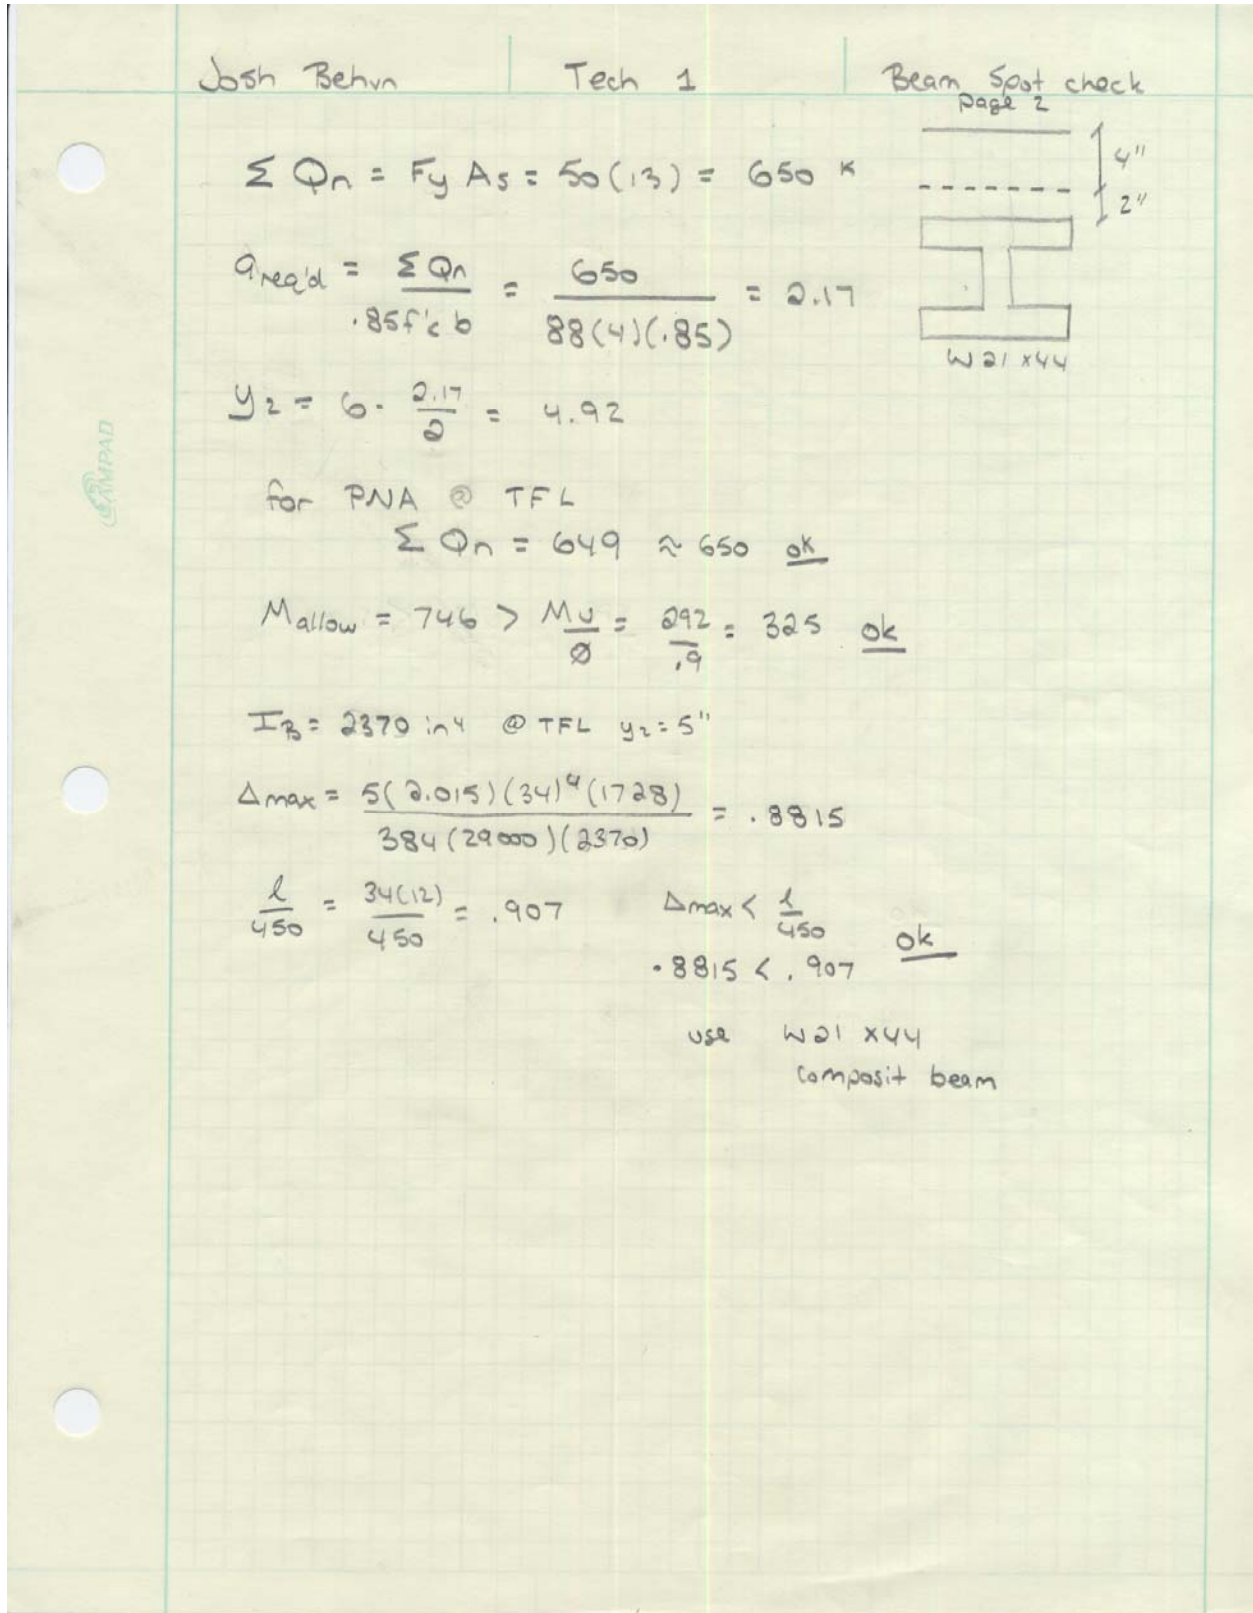 Josh Behun Tech 1 Beam Spot check
page 2
Σ Qn = Fy As = 50(13) = 650 k
4"
2"
W21x44
areq'd = Σ Qn / .85f'c b = 650 / 88(4)(.85) = 2.17
y2 = 6 - 2.17/2 = 4.92
for PNA @ TFL
Σ Qn = 649 ≈ 650 ok
Mallow = 746 > Mu/Ø = 292/.9 = 325 ok
IB = 2370 in4 @ TFL y2 = 5"
Δmax = 5(2.015)(34)^4(1728) / 384(29000)(2370) = .8815
l/450 = 34(12)/450 = .907
Δmax < l/450 ok
.8815 < .907
use W21x44
composit beam
AMPAD